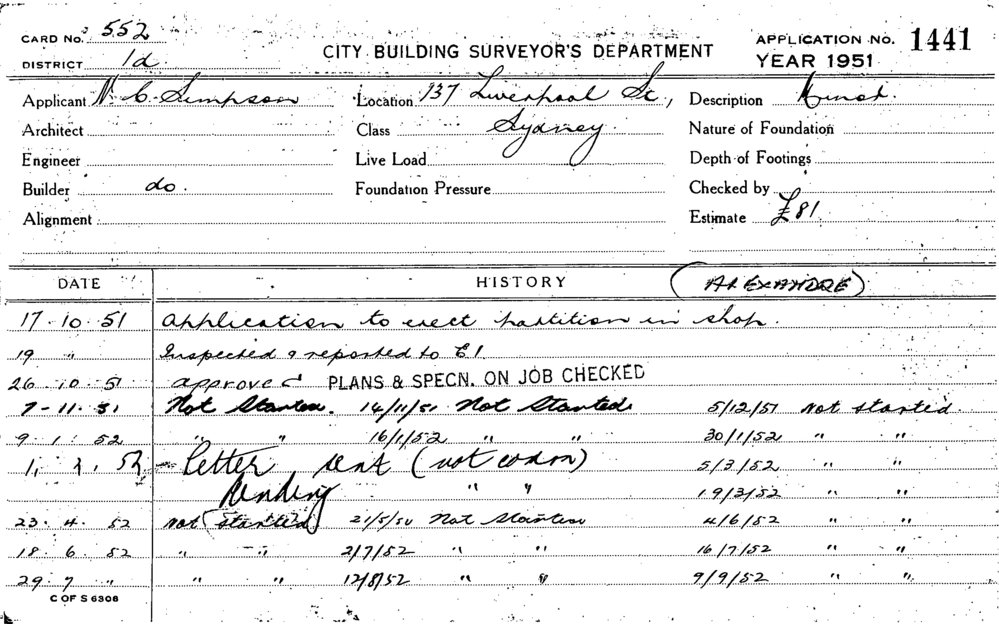 CARD No. 552
DISTRICT 1d
CITY BUILDING SURVEYOR'S DEPARTMENT
APPLICATION No. 1441
YEAR 1951
Applicant N. C. Simpson Location 137 Liverpool St, Description
Architect Class Sydney. Nature of Foundation
Engineer Live Load Depth of Footings
Builder do. Foundation Pressure Checked by
Alignment Estimate £81
DATE HISTORY (ALEXANDRE)
17.10.51 Application to erect partition in shop.
19 " Inspected & reported to E1
26.10.51 approved PLANS & SPECN. ON JOB CHECKED
7-11.51 Not Started. 14/11/51 Not Started 5/12/51 Not started.
9.1.52 " " 16/1/52 " " 30/1/52 " "
Letter sent (not 5/3/52 " "
pending " " 19/3/52 " "
23.4.52 not started 21/5/52 Not Started 4/6/52 " "
18.6.52 " " 2/7/52 " " 16/7/52 " "
29.7 " " " 12/8/52 " " 9/9/52 " "
C OF S 6306